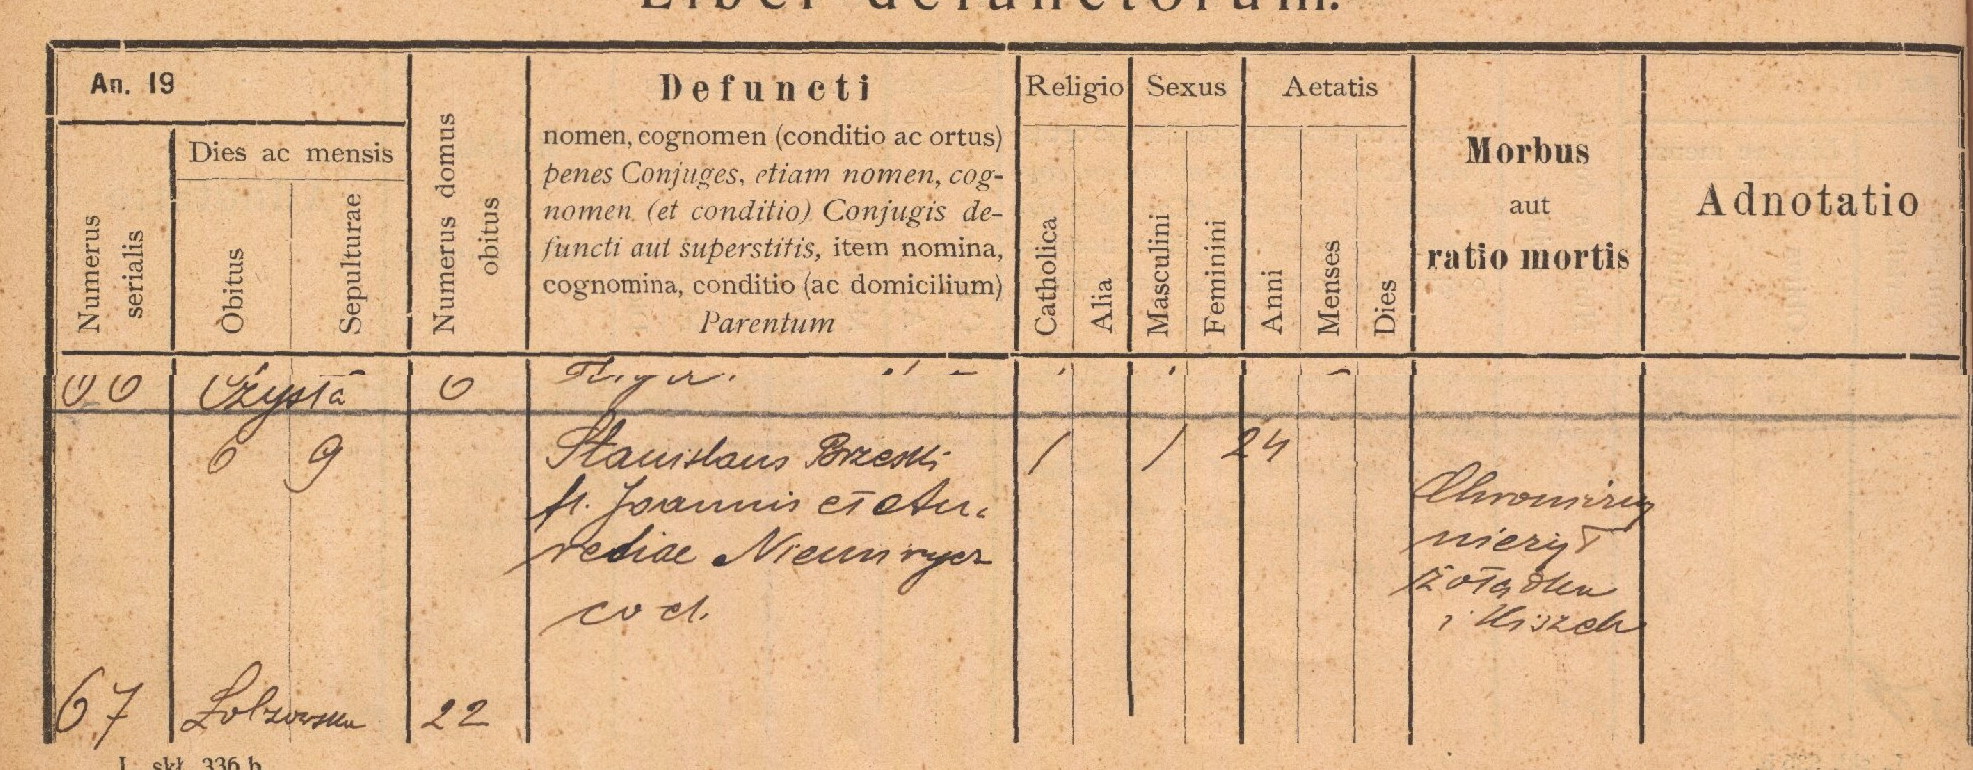 Liber defunctorum.
An. 19
Numerus serialis
Dies ac mensis
Obitus
Sepulturae
Numerus domus obitus
Defuncti
nomen, cognomen (conditio ac ortus)
penes Conjuges, etiam nomen, cog-
nomen (et conditio) Conjugis de-
functi aut superstitis, item nomina,
cognomina, conditio (ac domicilium)
Parentum
Religio
Catholica
Alia
Sexus
Masculini
Feminini
Aetatis
Anni
Menses
Dies
Morbus
aut
ratio mortis
Adnotatio
Czysta
6 9 Stanislaus Brzeski / / 24
fl. Joannis et
Niemirycz
Chroniczny
nieżyt
żołądka
i kiszek
67 Łobzowska 22
I. skł. 336 b